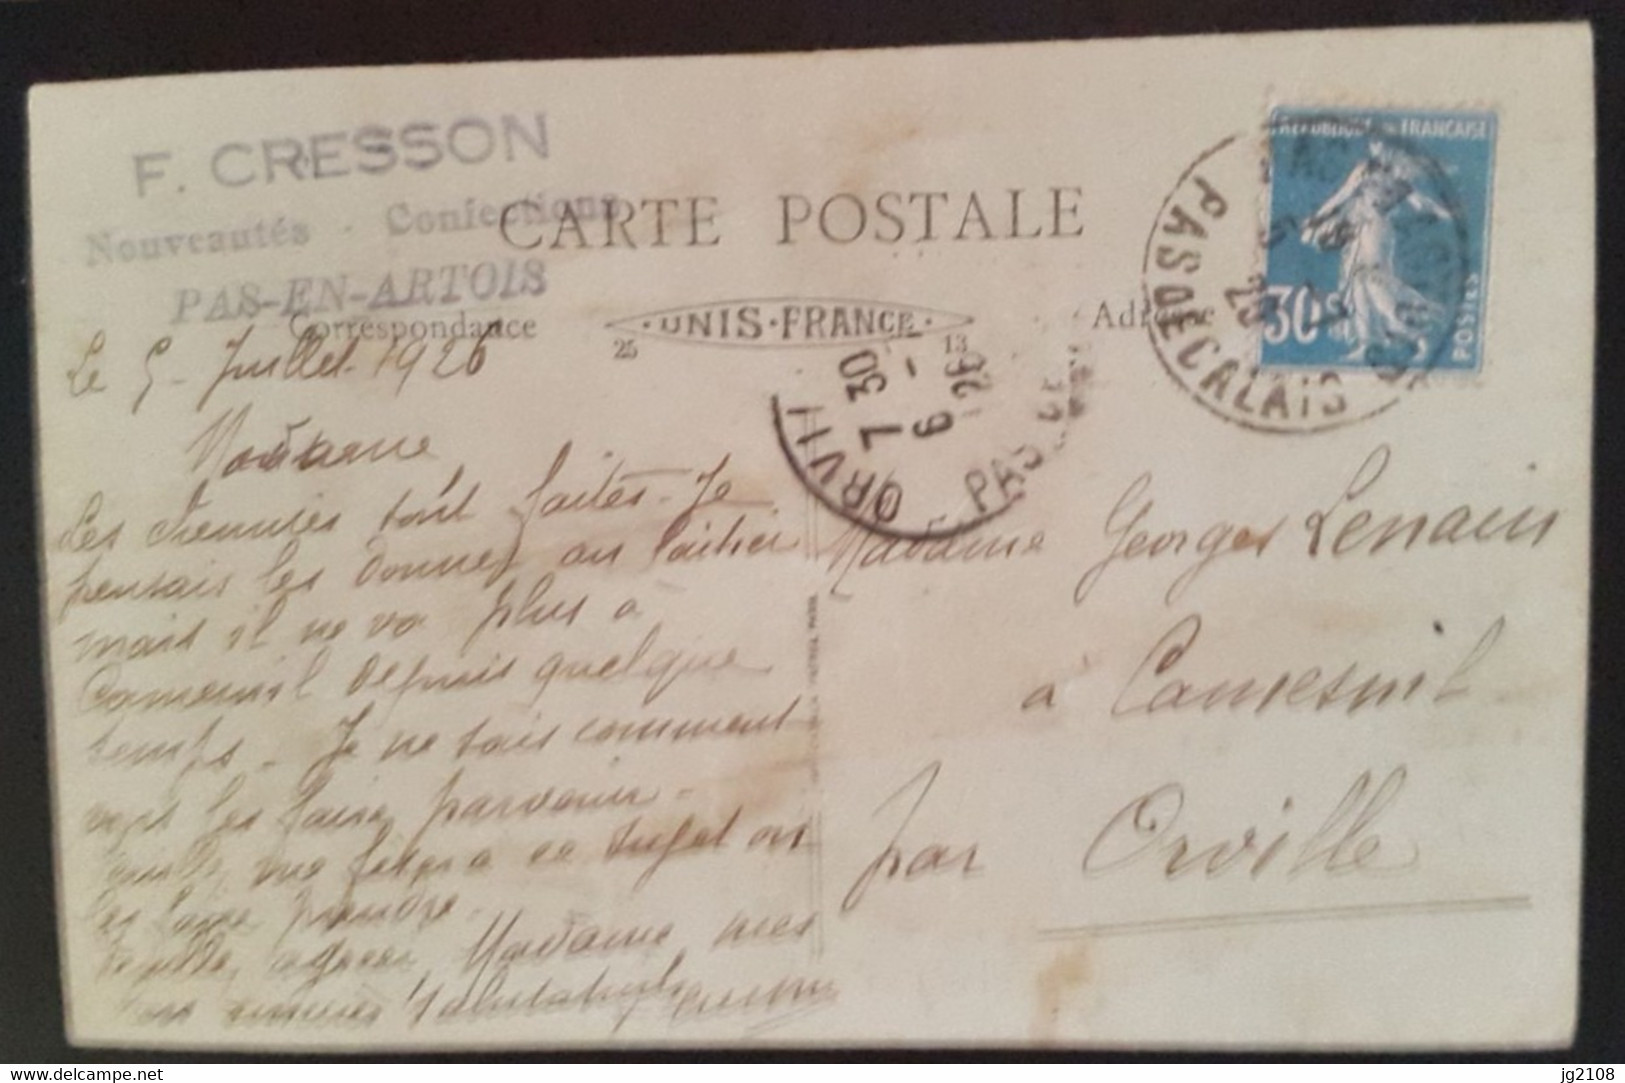 F. CRESSON
Nouveautés - Confections
PAS-EN-ARTOIS
CARTE POSTALE
Correspondance
UNIS-FRANCE
25
13
Adresse
REPUBLIQUE FRANÇAISE
30c
POSTES
PAS DE CALAIS
7 30
6 - 7
26
ORVILLE
PAS DE
Le 5 - Juillet 1926
Madame
Les chemises sont faites - Je
pensais les donner au laitier
mais il ne va plus à
Camesnil depuis quelque
temps - Je ne sais comment
vous les faire parvenir -
Veuillez me fixer à ce sujet ou
les faire prendre -
Veuillez agréer Madame mes
salutations Cresson
Madame Georges Lenain
à Camesnil
par Orville
www.delcampe.net
jg2108